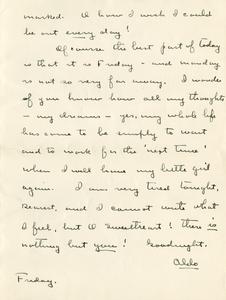 marked. O how I wish I could
be out every day!
Of course the best part of today
is that it is Friday - and monday
is not so very far away. I wonder
if you know how all my thoughts
- my dreams - yes, my whole life
has come to be simply to wait
and to work for the 'next time'
when I will have my little girl
again. I am very tired tonight,
dearest, and I cannot write what
I feel, but O sweetheart! there is
nothing but you! Goodnight.
Aldo
Friday.